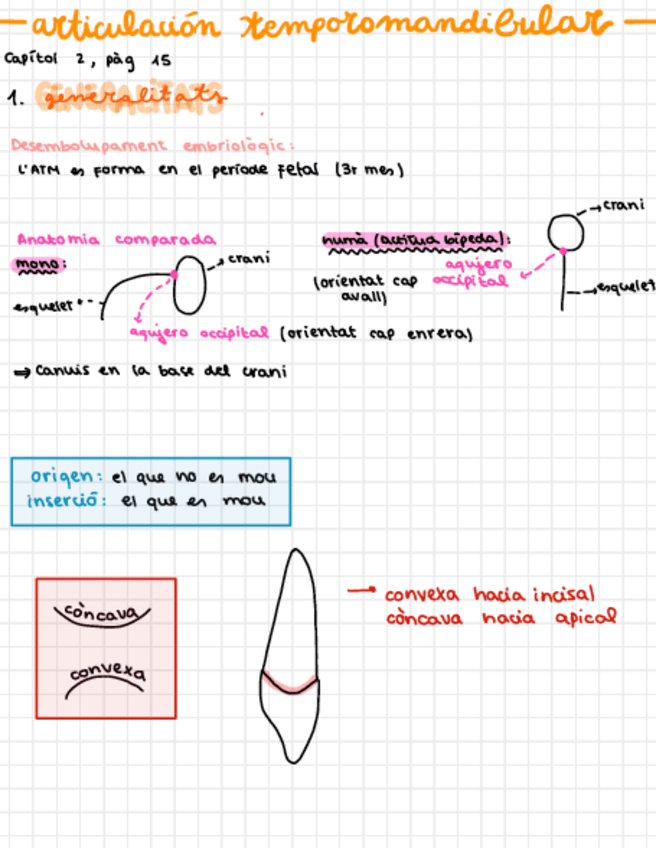 articulación temporomandibular
Capítol 2, pàg 15
1. generalitats
GENERALITATS
Desembolupament embriològic:
L'ATM es forma en el període fetal (3r mes)
Anatomia comparada
mono:
crani
esquelet
agujero occipital (orientat cap enrera)
humà (actitud bípeda):
(orientat cap
avall)
agujero
occipital
crani
esquelet
⇒ Canvis en la base del crani
origen: el que no es mou
inserció: el que es mou
còncava
convexa
→ convexa hacia incisal
còncava hacia apical